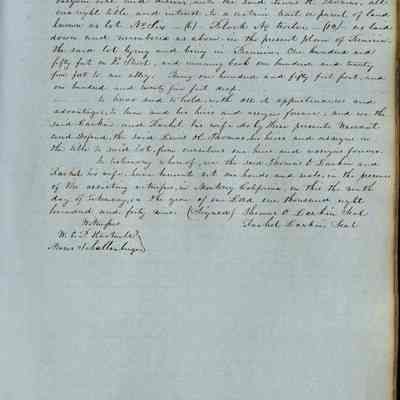 all
our right title and interest, to a certain tract or parcel of land
known as lot No
down and numbered as above in the present plan of Benicia
the said lot lying and being in Benicia, One hundred and
fifty feet on Street, and running back one hundred and twenty
five feet to an alley. Being one hundred and fifty feet front, and
one hundred and twenty five feet deep.
To have and to hold, with all it appurtenances and
advantages, to him and his heirs and assigns forever, and we the
said Larkin and Rachel his wife do by these presents Warrant
and Defend, the said Lewis his heirs and assigns in
the title to said lot, from ourselves our heirs and assigns forever.
In testimony whereof, we the said Thomas O Larkin and
Rachel his wife, have hereunto set our hands and seals, in the presence
of the assisting witnesses, in Monterey California, on this the ninth
day of February, in the year of our Lord, one thousand eight
hundred and forty nine. (Signed) Thomas O Larkin Seal
Witnesses Rachel Larkin Seal
W. E. P. Hartnell
Moses Schallenberger